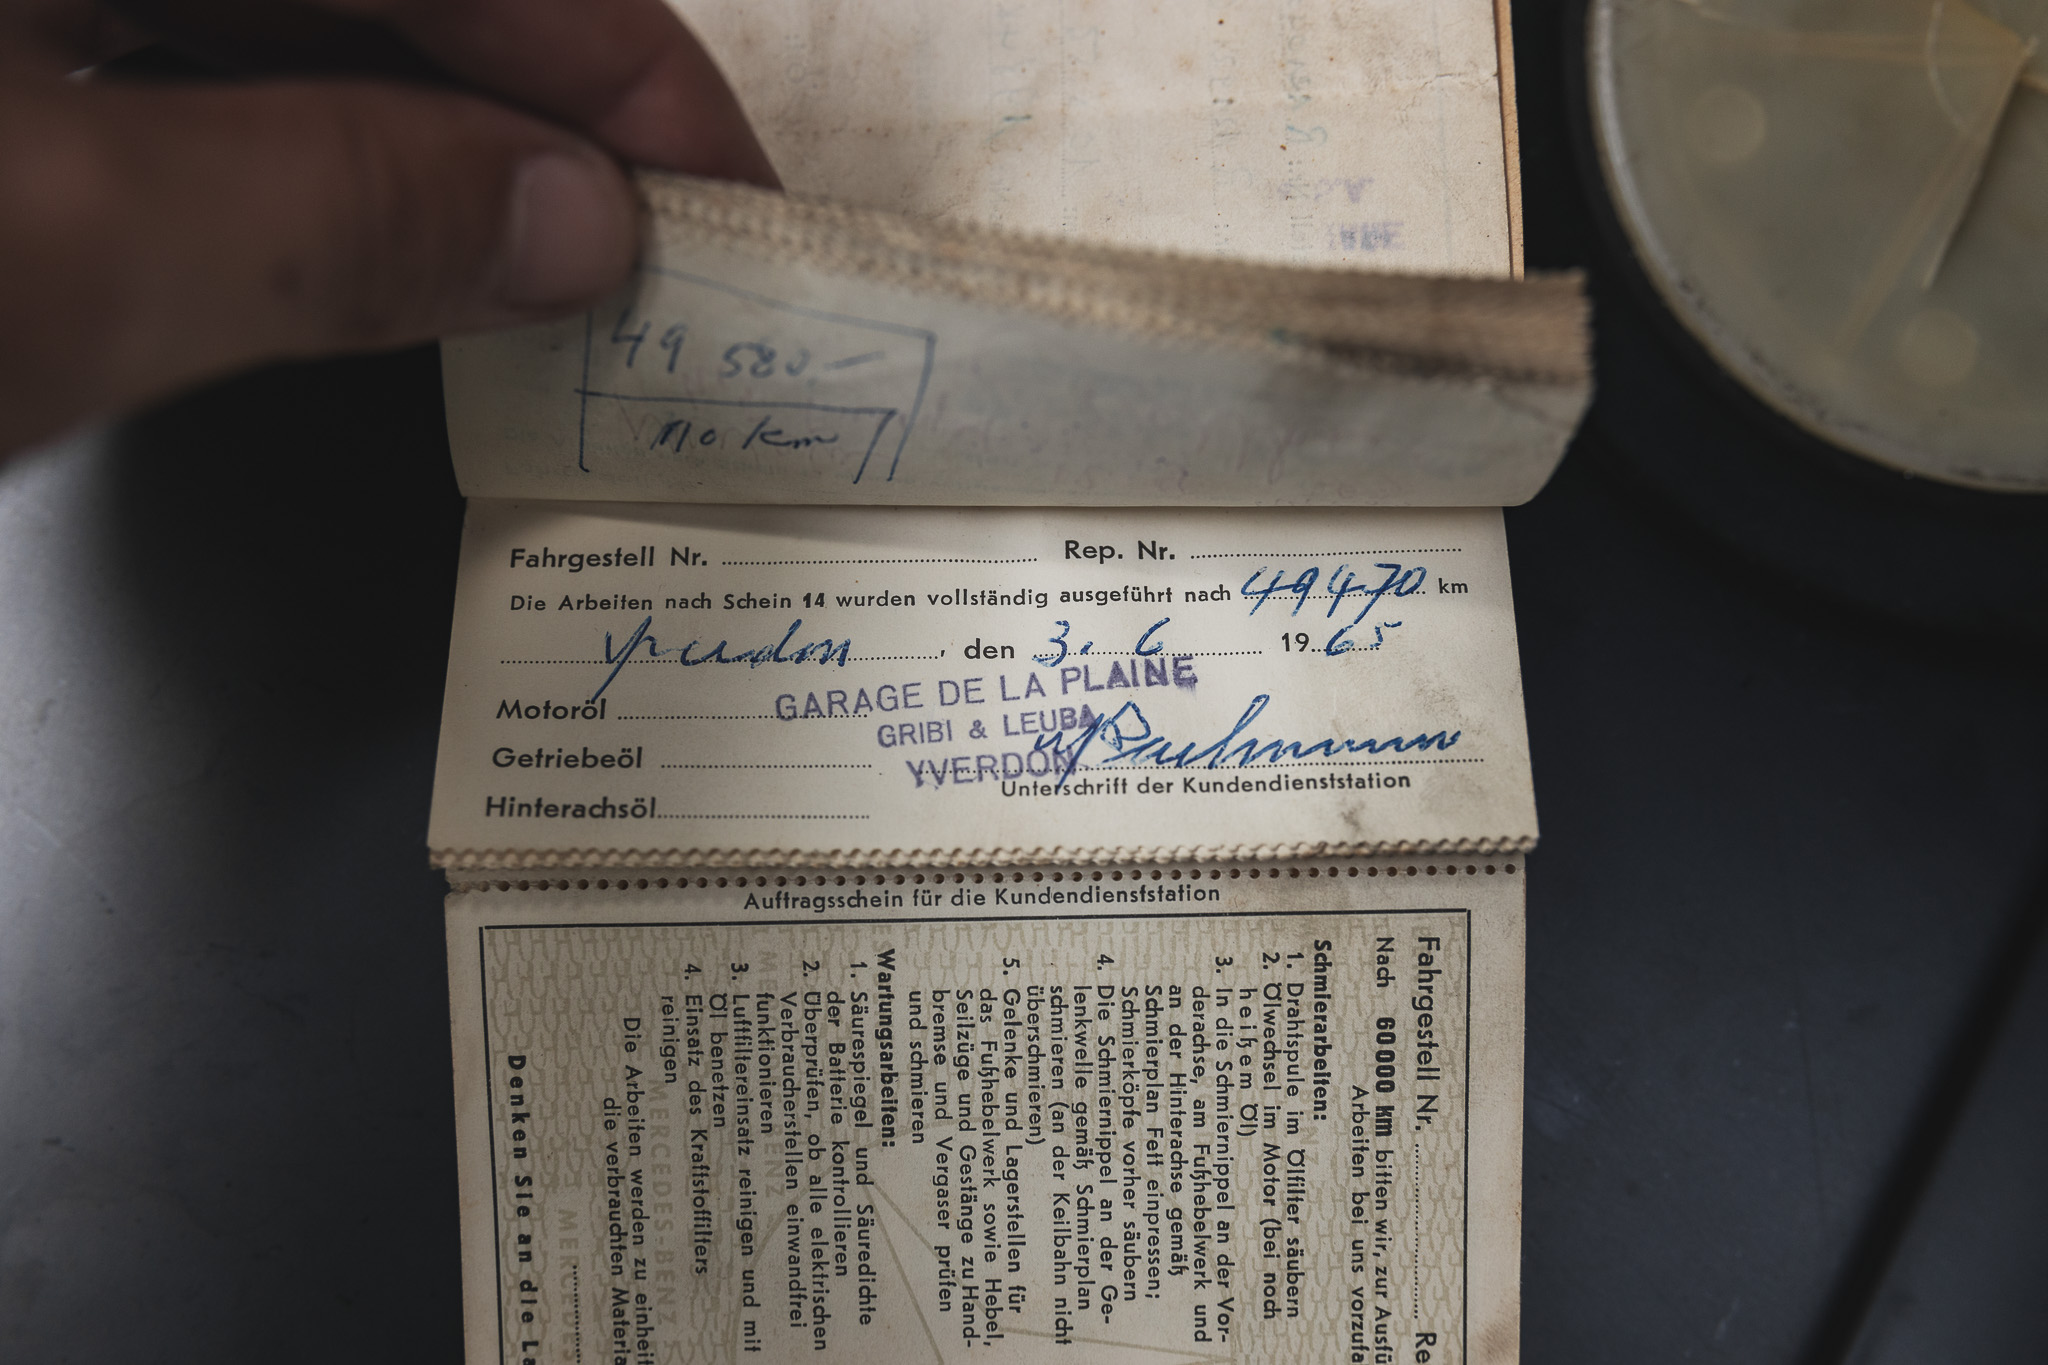 49 580.–
110 km
Fahrgestell Nr. Rep. Nr.
Die Arbeiten nach Schein 14 wurden vollständig ausgeführt nach 49470 km
Yverdon, den 3. 6 19 65
Motoröl
GARAGE DE LA PLAINE
GRIBI & LEUBA
YVERDON
Getriebeöl
Unterschrift der Kundendienststation
Hinterachsöl
Auftragsschein für die Kundendienststation
Fahrgestell Nr. Re
Nach 60000 km bitten wir, zur Ausfü
Arbeiten bei uns vorzufa
Schmierarbeiten:
1. Drahtspule im Ölfilter säubern
2. Ölwechsel im Motor (bei noch
heißem Öl)
3. In die Schmiernippel an der Vor-
derachse, am Fußhebelwerk und
an der Hinterachse gemäß
Schmierplan Fett einpressen;
Schmierköpfe vorher säubern
4. Die Schmiernippel an der Ge-
lenkwelle gemäß Schmierplan
schmieren (an der Keilbahn nicht
überschmieren)
5. Gelenke und Lagerstellen für
das Fußhebelwerk sowie Hebel,
Seilzüge und Gestänge zu Hand-
bremse und Vergaser prüfen
und schmieren
Wartungsarbeiten:
1. Säurespiegel und Säuredichte
der Batterie kontrollieren
2. Überprüfen, ob alle elektrischen
Verbraucherstellen einwandfrei
funktionieren
3. Luftfiltereinsatz reinigen und mit
Öl benetzen
4. Einsatz des Kraftstoffilters
reinigen
Die Arbeiten werden zu einheit
die verbrauchten Materia
Denken Sie an die La
MERCEDES-BENZ